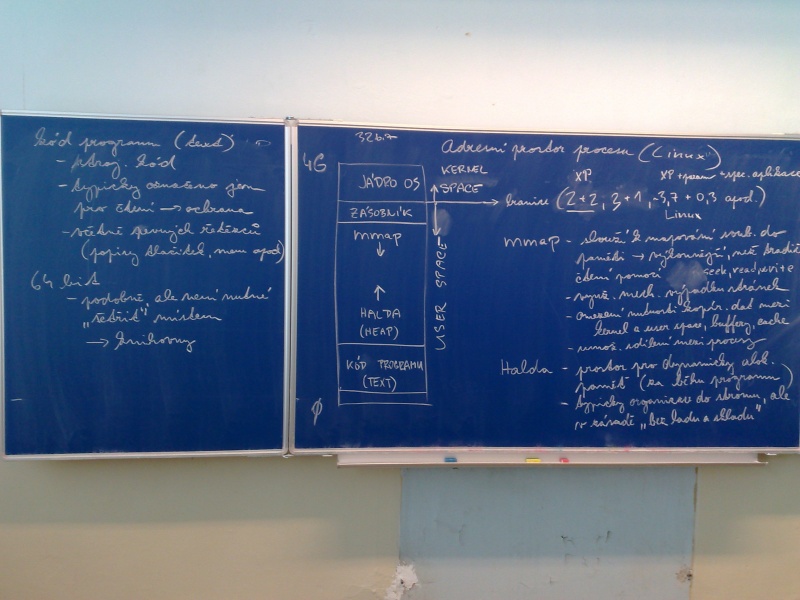 kód programu (text)
- stroj. kód
- typicky označeno jen
pro čtení → ochrana
- včetně pevných řetězců
(popisy tlačítek, menu apod)
64 bit
- podobně, ale není nutné
"šetřit" místem
→ knihovny
32 bit
4G
JÁDRO OS
ZÁSOBNÍK
mmap
HALDA
(HEAP)
KÓD PROGRAMU
(TEXT)
0
KERNEL
SPACE
USER SPACE
Adresní prostor procesu (Linux)
XP XP + + spec. aplikace
hranice (2+2, 3+1, 3,7 + 0,3 apod.)
Linux
mmap - slouží k mapování soub. do
paměti → výkonnější, než tradič.
čtení pomocí seek, read, write
- využ. mech. výpadku stránek
- omezení nutnosti kopír. dat mezi
kernel a user space, buffery, cache
- umož. sdílení mezi procesy
Halda - prostor pro dynamicky alok.
paměť (za běhu programu)
- typicky organizace do stromu, ale
v zásadě "bez ladu a skladu"